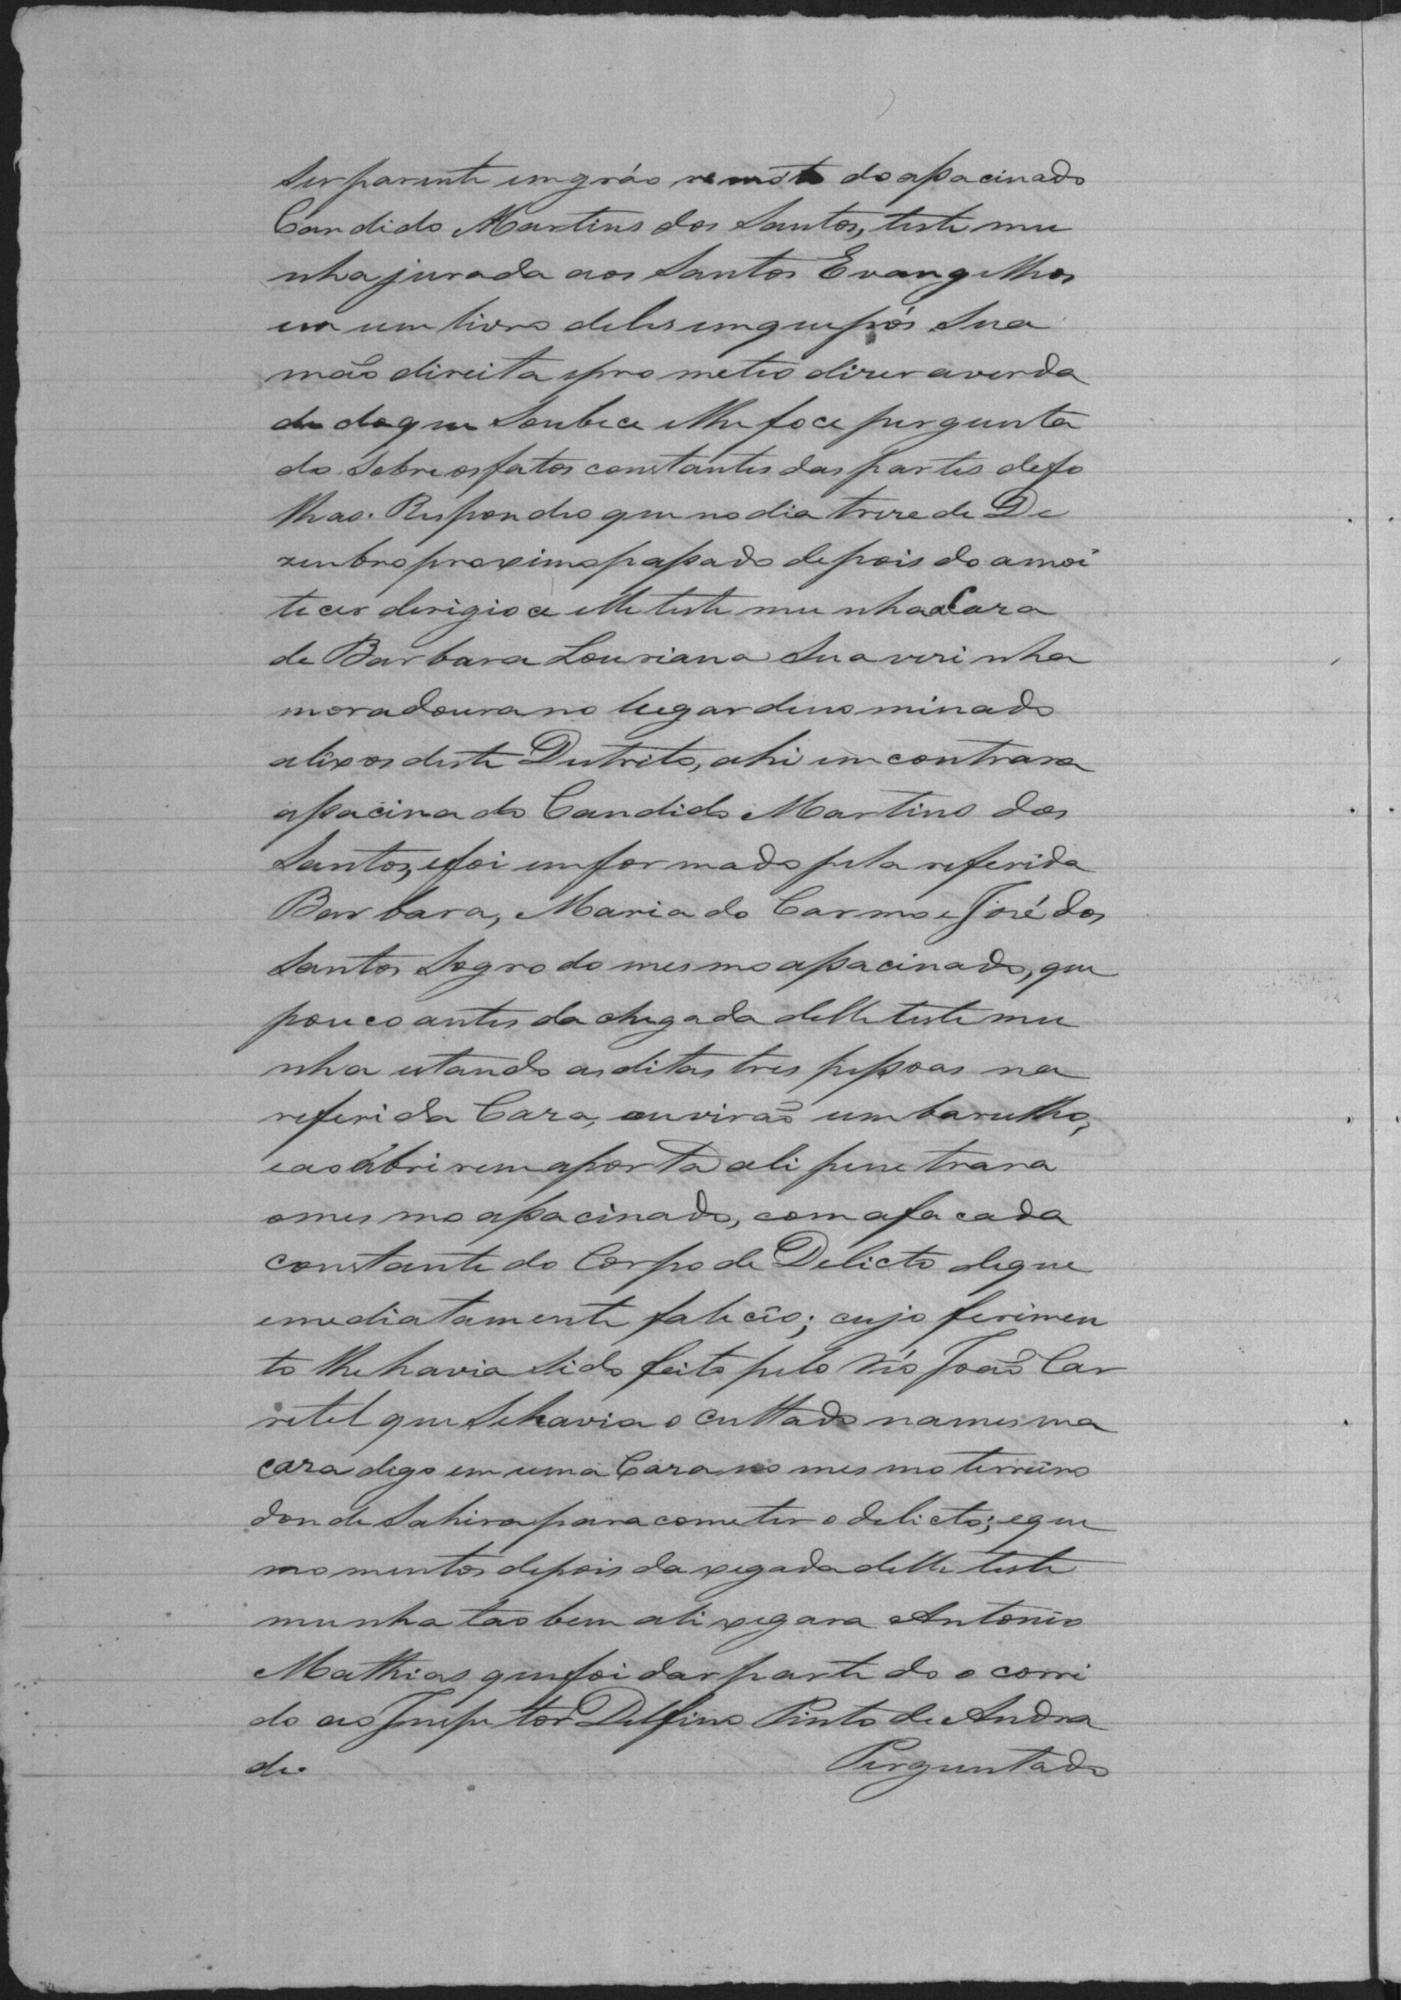 ser parente em gráo remóto do assacinado
Candido Martins dos Santos, testemu
nha jurada aos Santos Evangelhos
em um livro deles em que pós sua
mão direita e prometeo dizer a verda
de do que soubece e lhe foce pergunta
do sobre os fatos constantes das partes de fo
lhas. Respondeo que no dia treze de De
zenbro proximo passado depois do anoi
tecer derigioce elle testemunha a Caza
de Barbara Louriana sua vezinha
moradoura no lugar denominado
deste Destrito, ahi emcontrara
assacinado Candido Martins dos
Santos, e foi emformado pela referida
Barbara, Maria do Carmo e José dos
Santos Sogro do mesmo assacinado, que
pouco antes da chegada delle testemu
nha estando as ditas tres pessoas na
referida Caza, ouvirão um barulho,
e ao ábrirem a porta ali penetrara
o mesmo assacinado, com a facada
constante do Corpo de Delicto de que
emediatamente faleceo; cujo ferimen
to lhe havia sido feito pelo réo João Car
retel que se havia ocultado na mesma
caza digo em uma Caza no mesmo terreiro
donde sahira para cometer o delicto; e que
momentos depois da xegada delle teste
munha taobem ali xegara Antonio
Mathias que foi dar parte do ocorri
do ao Inspetor Delfino Pinto de Andra
de. Perguntado